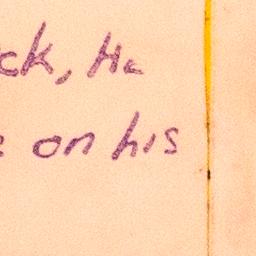 ck, He
e on his